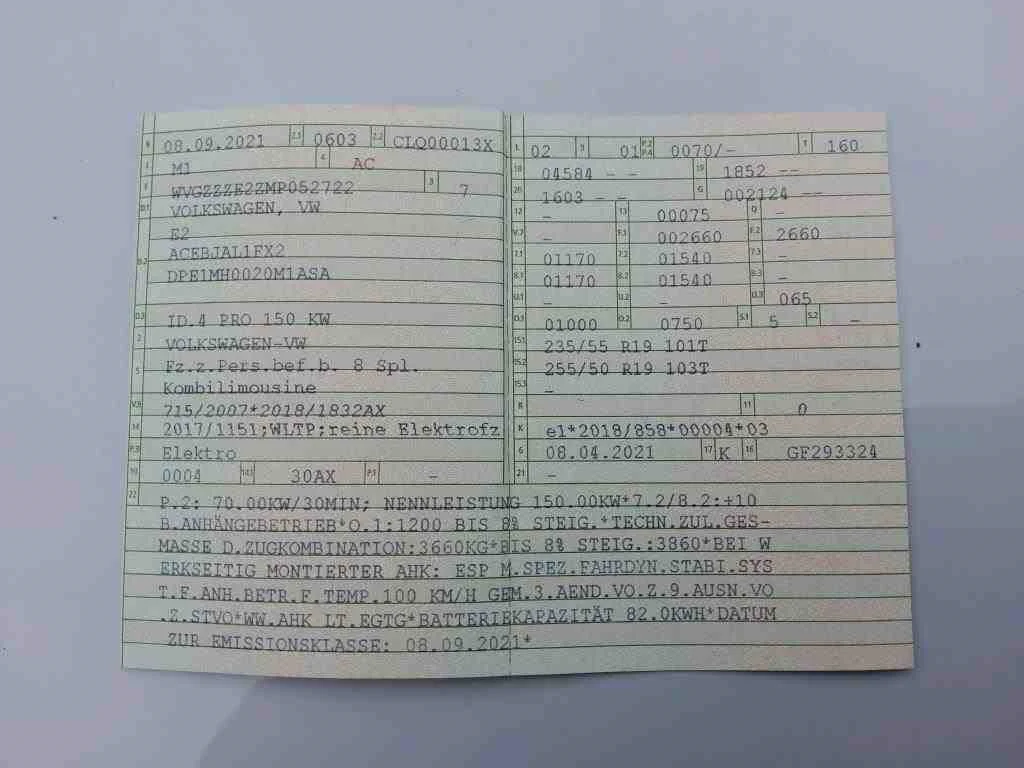 B 08.09.2021 2.1 0603 2.2 CLQ00013X
J M1 4 AC
E WVGZZZE2ZMP052722 3 7
D.1 VOLKSWAGEN, VW
E2
D.2 ACEBJAL1FX2
DPE1MH0020M1ASA
D.3 ID.4 PRO 150 KW
2 VOLKSWAGEN-VW
5 Fz.z.Pers.bef.b. 8 Spl.
Kombilimousine
V.9 715/2007*2018/1832AX
14 2017/1151;WLTP;reine Elektrofz
P.3 Elektro
10 0004 14.1 30AX P.1 -
L 02 9 01 P.2 P.4 0070/- T 160
18 04584 - - 19 1852 --
20 1603 - - G 002124 --
12 - 13 00075 Q -
V.7 - F.1 002660 F.2 2660
7.1 01170 7.2 01540 7.3 -
8.1 01170 8.2 01540 8.3 -
U.1 - U.2 - U.3 065
O.1 01000 O.2 0750 S.1 5 S.2 -
15.1 235/55 R19 101T
15.2 255/50 R19 103T
15.3 -
R 11 0
K e1*2018/858*00004*03
6 08.04.2021 17 K 16 GF293324
21 -
22 P.2: 70.00KW/30MIN; NENNLEISTUNG 150.00KW*7.2/8.2:+10
B.ANHÄNGEBETRIEB*O.1:1200 BIS 8% STEIG.*TECHN.ZUL.GES-
MASSE D.ZUGKOMBINATION:3660KG*BIS 8% STEIG.:3860*BEI W
ERKSEITIG MONTIERTER AHK: ESP M.SPEZ.FAHRDYN.STABI.SYS
T.F.ANH.BETR.F.TEMP.100 KM/H GEM.3.AEND.VO.Z.9.AUSN.VO
.Z.STVO*WW.AHK LT.EGTG*BATTERIEKAPAZITÄT 82.0KWH*DATUM
ZUR EMISSIONSKLASSE: 08.09.2021*